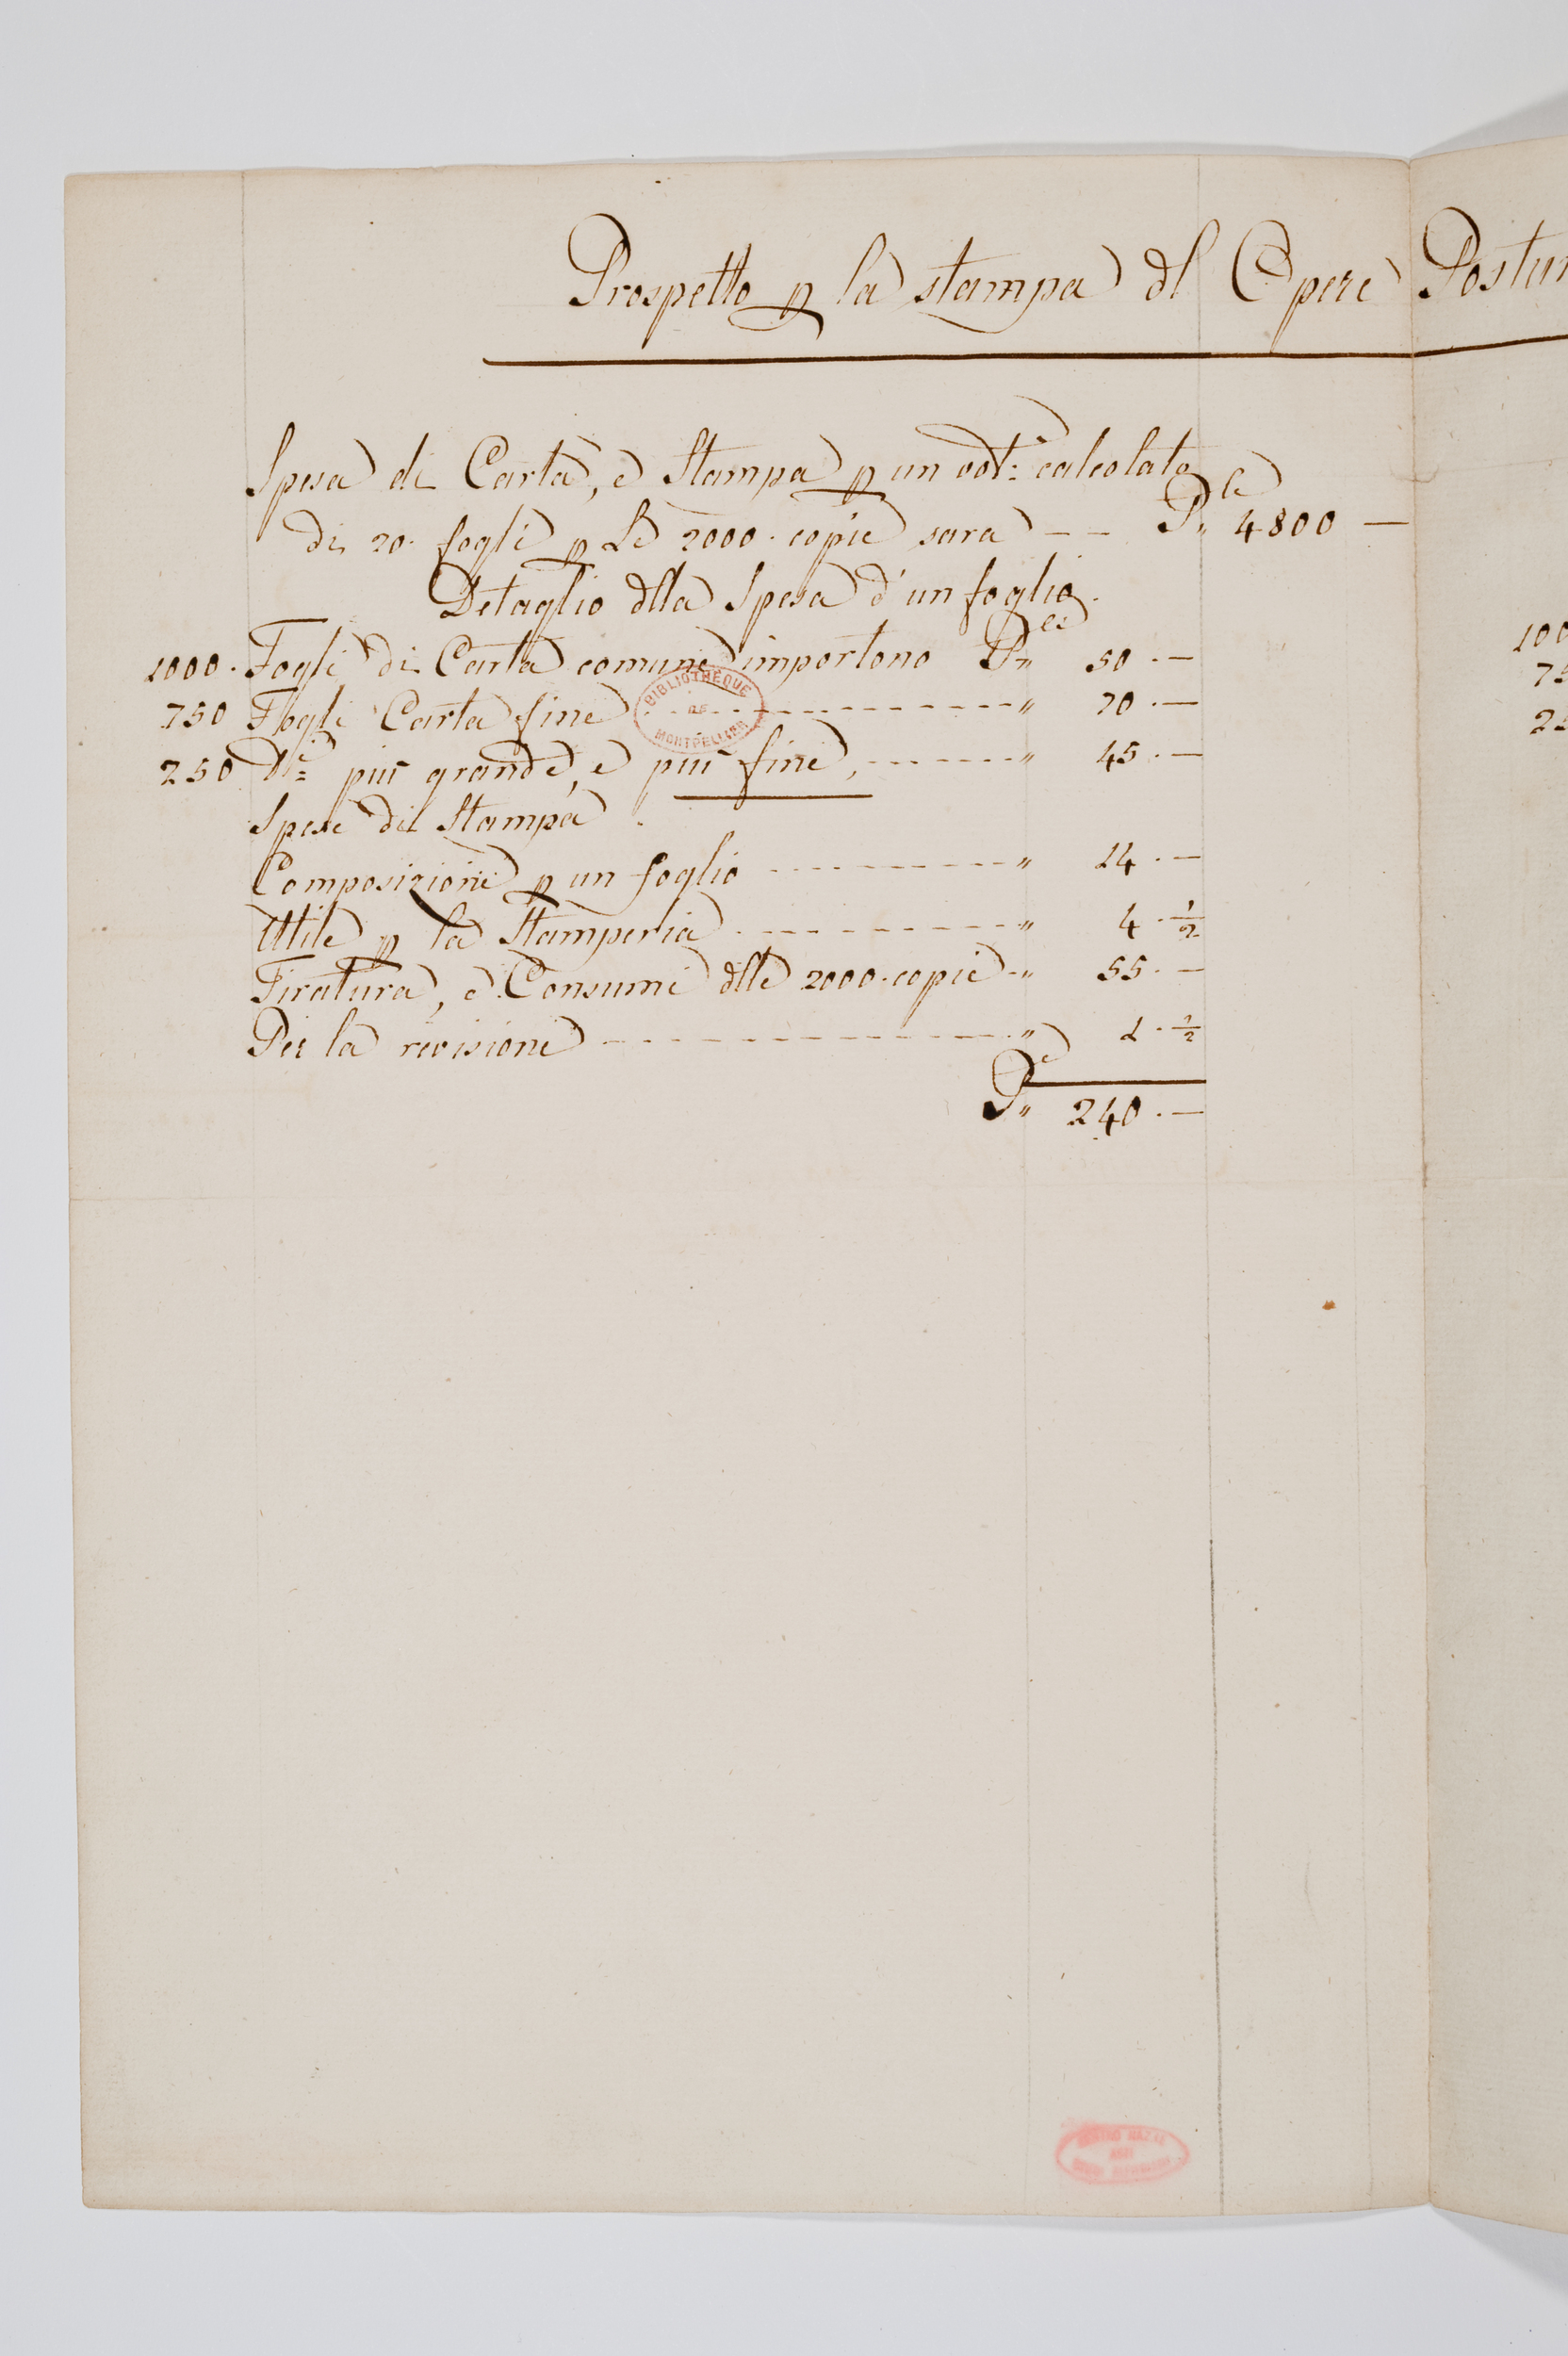 Prospetto p la stampa dl Opere Postu
Spesa di Carta, e Stampa p un vol: calcolato
di 20. fogli p Le 2000. copie sara -- P.e 4800 —
Detaglio dlla Spesa d'un foglio.
1000. Fogli di Carta comune importono P.es 50.—
750 Fogli Carta fine " 70.—
250 più grande, e più fine, " 45.—
Spese di Stampa.
Composizione p un foglio " 14.—
Utile p la Stamperia " 4.½
Tiratura, e Consumi dlle 2000. copie " 55.—
Per la revisione " 1.½
P.e 240.—
BIBLIOTHEQUE
DE
MONTPELLIER
100
75
25